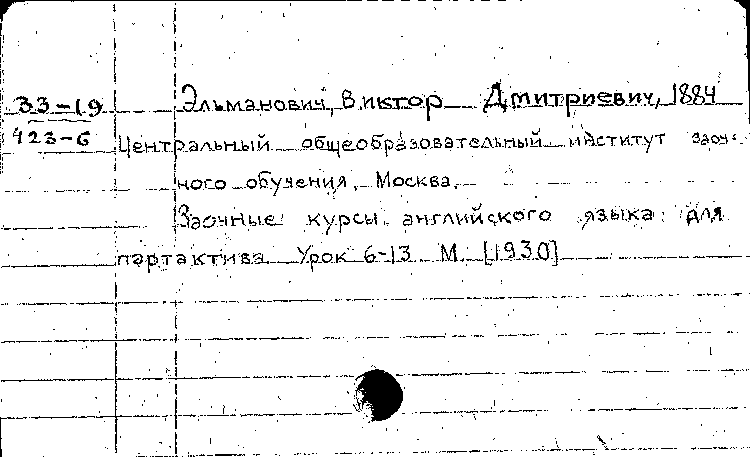 33-19 Эльманович, Виктор Дмитриевич, 1884
423-6 Центральный общеобразовательный институт заоч-
ного обучения, Москва.
Заочные курсы английского языка для
партактива. Урок 6-13. М. [1930]